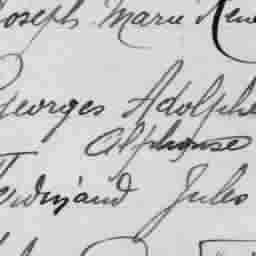 Joseph Marie René
Georges Adolphe
Alphonse
Ferdinand Jules